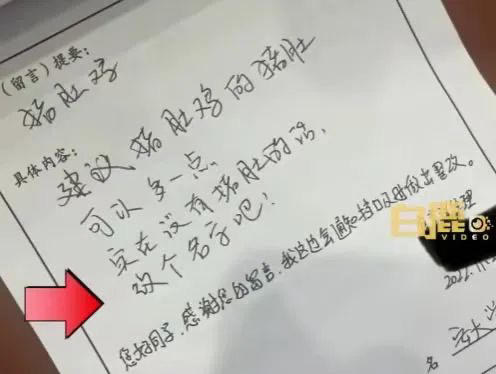 （留言）提要：
猪肚鸡
具体内容：
建议猪肚鸡的猪肚
可以多一点
实在没有猪肚的话，
改个名字吧！
您好同学，感谢您的留言，我这边会通知档口及时做出整改。
经理
2022.11.
名
白鹿
VIDEO